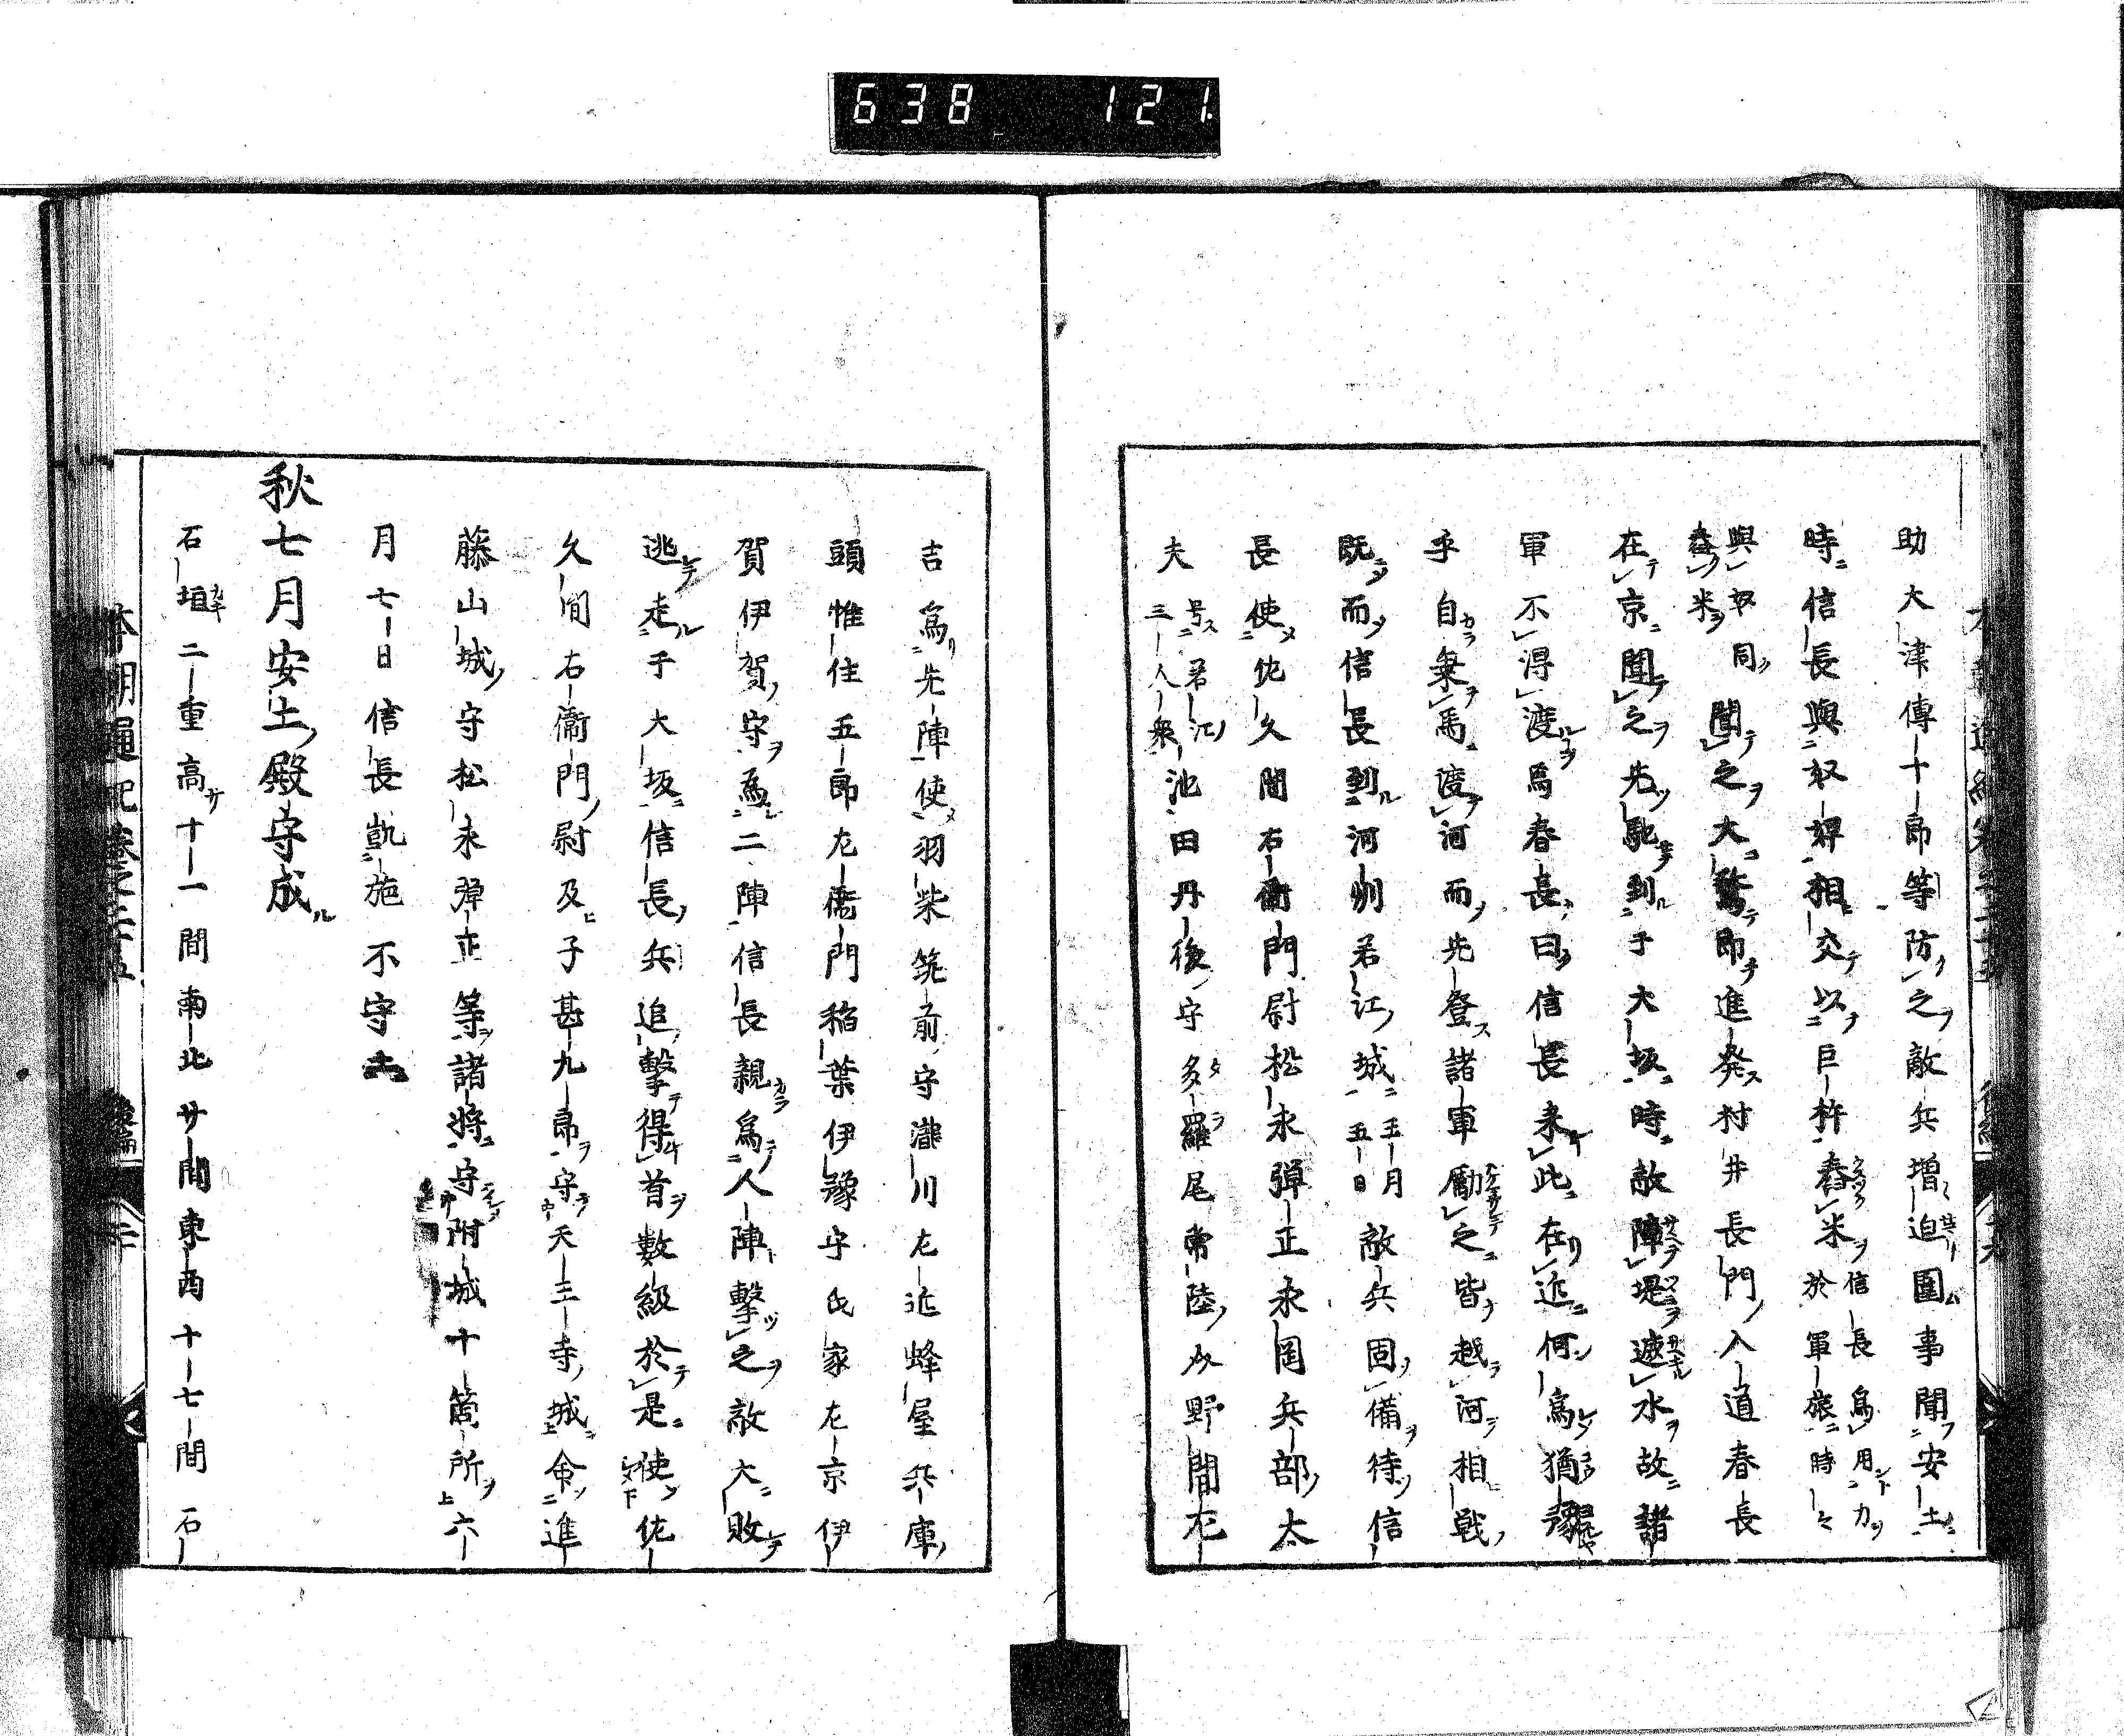 638 121
助大津傳十郎等防之敵兵增迫圍事聞安土
時信長與奴婢相交以巨杵舂米信長爲用力於軍旅時々
與奴同舂米聞之大驚即進発村井長門入道春長
在京聞之先馳到于大坂時敵障堤遮水故諸
軍不得渡焉春長曰信長来此在近何爲猶豫
乎自棄馬渡河而先登諸軍勵之皆越河相戦
既而信長到河州若江城五月五日敵兵固備待信
長使佐久間右衛門尉松永弾正永岡兵部太
夫号若江三人衆池田丹後守多羅尾常陸介野間左
吉爲先陣使羽柴筑前守瀧川左近蜂屋兵庫
頭惟住五郎左衛門稲葉伊豫守氏家左京伊
賀伊賀守爲二陣信長親爲人陣擊之敵大敗
逃走于大坂信長兵追擊得首數級於是使佐
久間右衛門尉及子甚九郎守天王寺城命進
藤山城守松永弾正等諸將守附城十箇所六
月七日信長凱施不守
秋七月安土殿守成
石垣二重高十一間南北廿間東西十七間石
本朝通紀卷之二十五 後編 二